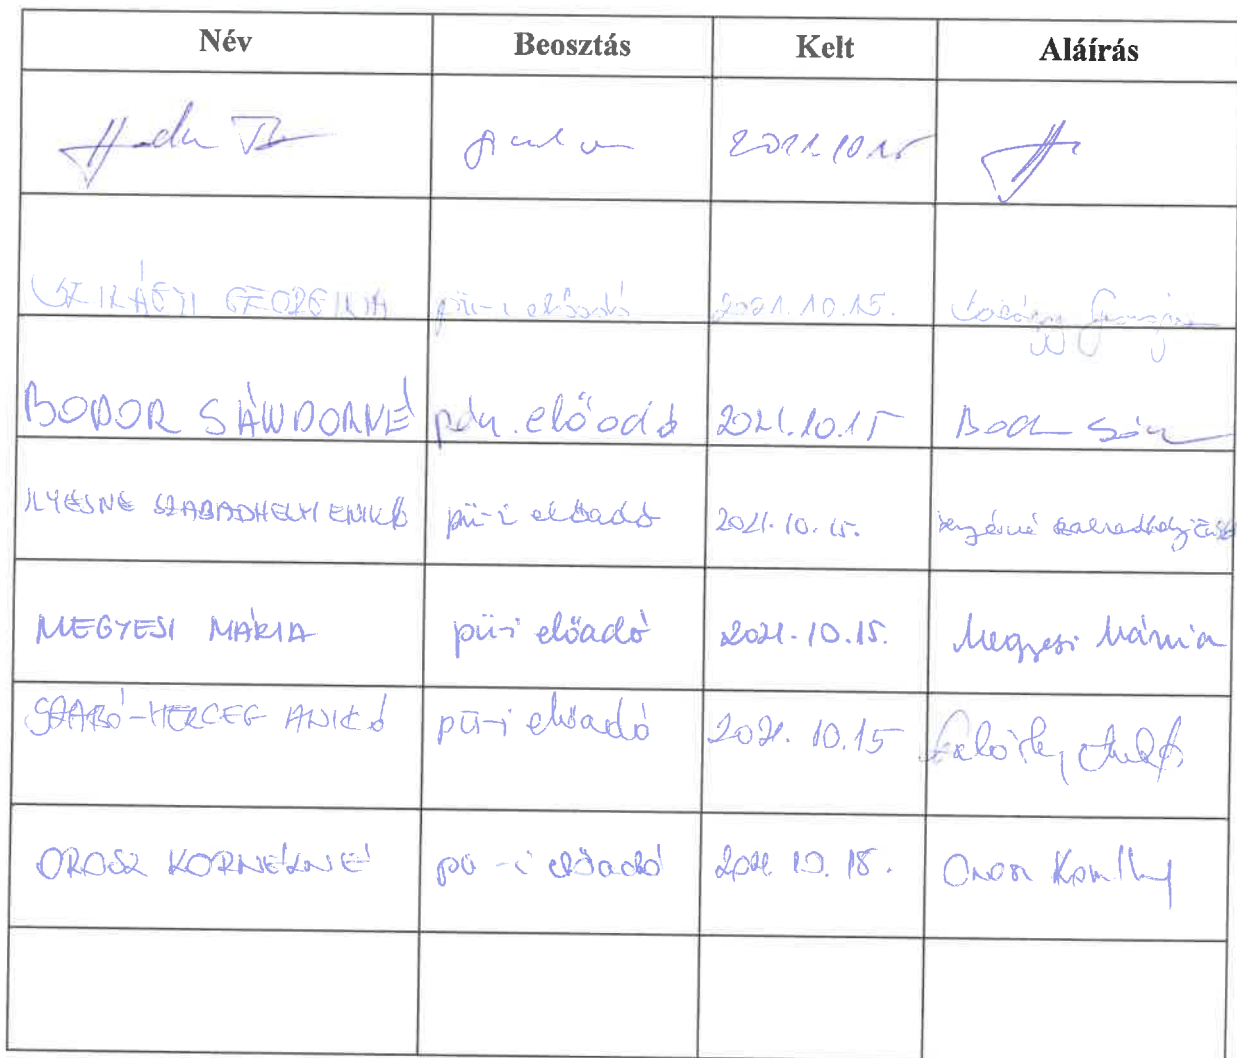 Név Beosztás Kelt Aláírás
2021.10.15
SZILÁGYI GEORGINA pü-i előadó 2021.10.15.
BODOR SÁNDORNÉ pü. előadó 2021.10.15
ILYÉSNÉ SZABADHELYI ENIKŐ pü-i előadó 2021.10.15.
MEGYESI MÁRIA pü-i előadó 2021.10.15. Megyesi Mária
SZABÓ-HERCEG ANIKÓ pü-i előadó 2021.10.15
OROSZ KORNÉLNÉ pü-i előadó 2021.10.18. Orosz